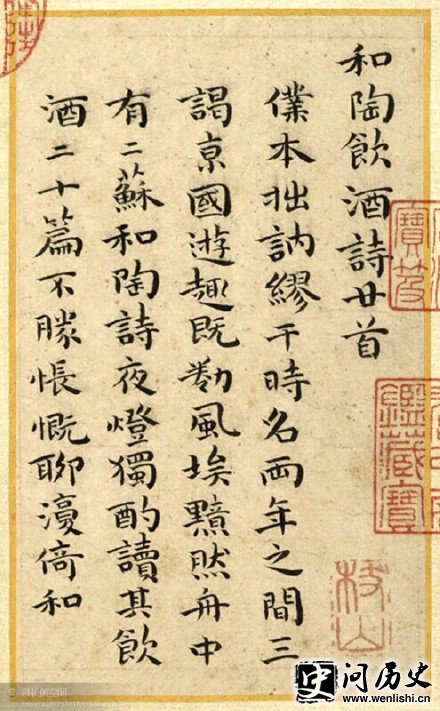 和陶飲酒詩廿首
僕本拙訥繆干時名兩年之間三
謁京國遊趣既勌風埃黯然舟中
有二蘇和陶詩夜燈獨酌讀其飲
酒二十篇不勝悵慨聊漫倚和
寶笈
鑑藏寶
枝山
问历史
www.wenlishi.com